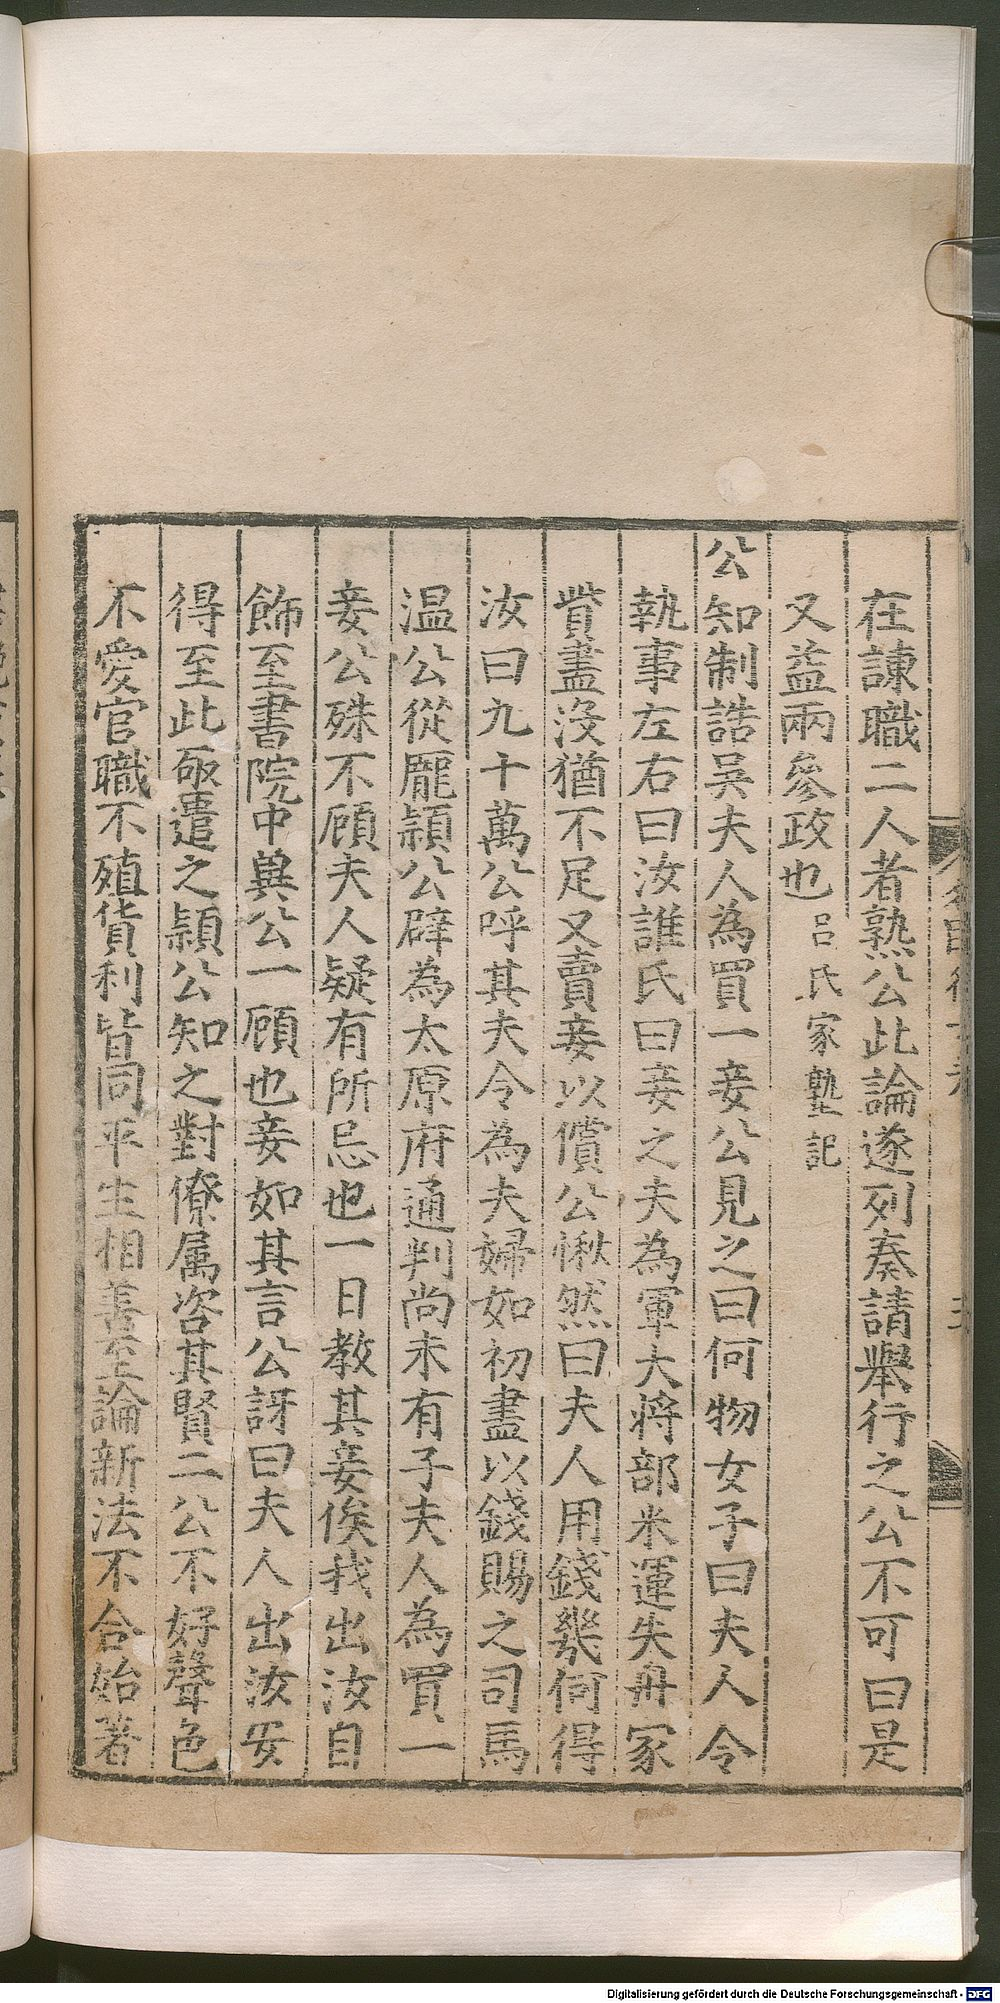 在諌職二人者熟公此論遂列奏請舉行之公不可曰是
又益兩參政也 呂氏家塾記
公知制誥吳夫人為買一妾公見之曰何物女子曰夫人令
執事左右曰汝誰氏曰妾之夫為軍大將部米運失舟家
貲盡沒猶不足又賣妾以償公愀然曰夫人用錢幾何得
汝曰九十萬公呼其夫令為夫婦如初盡以錢賜之司馬
温公從龐頴公辟為太原府通判尚未有子夫人為買一
妾公殊不顧夫人疑有所忌也一日教其妾俟我出汝自
飾至書院中兾公一顧也妾如其言公訝曰夫人出汝安
得至此亟遣之頴公知之對僚属咨其賢二公不好聲色
不愛官職不殖貨利皆同平生相善至論新法不合始著
Digitalisierung gefördert durch die Deutsche Forschungsgemeinschaft - DFG